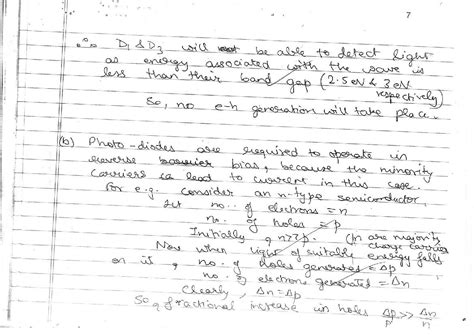 7
∴ D₁ & D₃ will not be able to detect light
as energy associated with the wave is
less than their band gap (2.5 eV & 3 eV
respectively)
So, no e-h generation will take place.
(b) Photo-diodes are required to operate in
reverse bias, because the minority
carriers lead to current in this case.
For e.g. consider an n-type semiconductor,
let no. of electrons = n
no. of holes = p
Initially, n>>p. (n are majority
charge carriers
Now when light of suitable energy falls
on it, no. of holes generated = Δp
no. of electrons generated = Δn
Clearly, Δn = Δp
So, fractional increase in holes Δp/p >> Δn/n